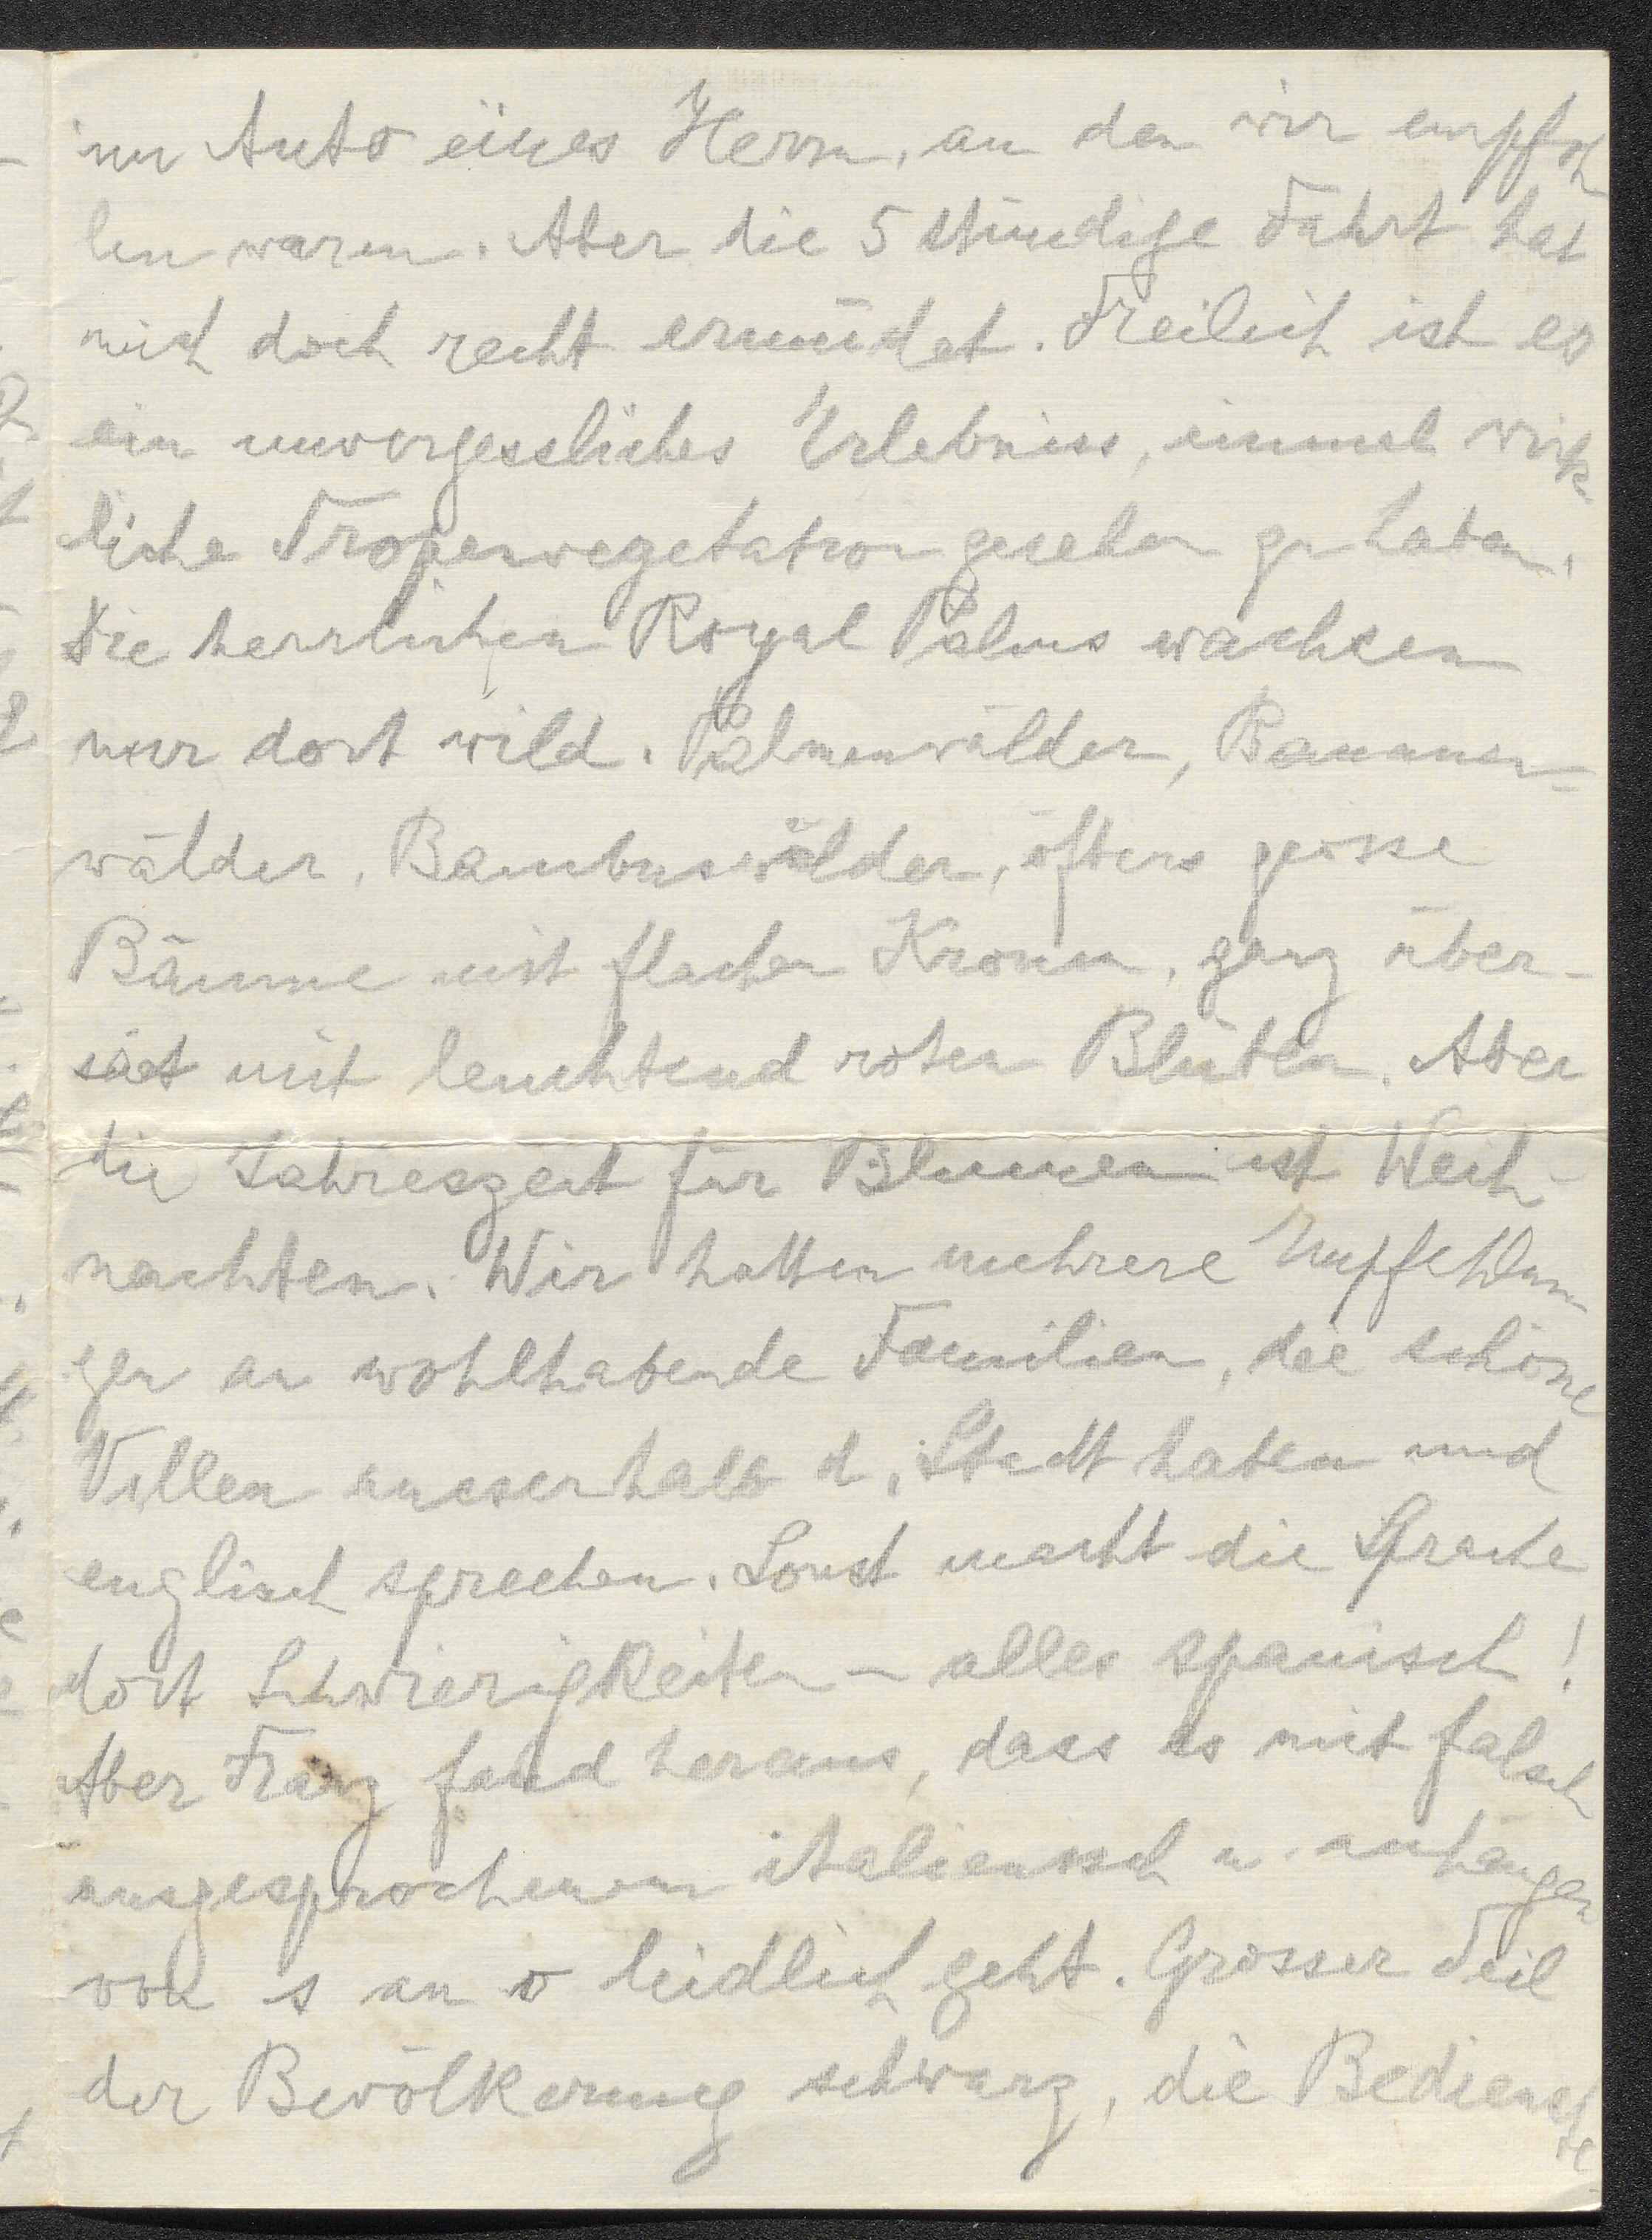 im Auto eines Herrn, an den wir empfoh
len waren. Aber die 5 stündige Fahrt hat
mich doch recht ermüdet. Freilich ist es
ein unvergessliches Erlebniss, einmal wirk
liche Tropenvegetation gesehen zu haben.
Die herrlichen Royal Palms wachsen
nur dort wild. Palmenwälder, Bananen=
wälder, Bambuswälder, öfters grosse
Bäume mit flachen Kronen, ganz über-
sät mit leuchtend roten Blüten. Aber
die Jahreszeit für Blumen ist Weih-
nachten. Wir hatten mehrere Empfehlun
gen an wohlhabende Familien, die schöne
Villen ausserhalb d. Stadt haben und
englisch sprechen. Sonst macht die Sprache
dort Schwierigkeiten – alles spanisch!
Aber Franz fand heraus, dass es mit falsch
ausgesprochenem italienisch u. anhängen
von s an o leidlich geht. Grosser Teil
der Bevölkerung schwarz, die Bedienste